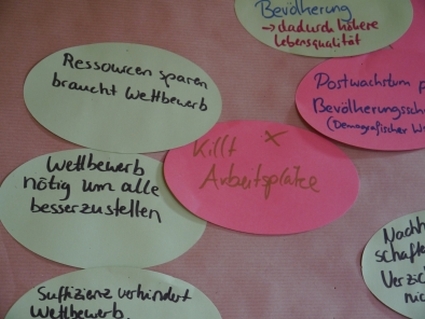 Bevölkerung
→ dadurch höhere
Lebensqualität
Ressourcen sparen
braucht Wettbewerb
Postwachstum
Bevölkerungssch
(Demografischer W
Killt
Arbeitsplätze
Wettbewerb
nötig um alle
besserzustellen
Nachh
schafte
Verzic
nic
Suffizienz verhindert
Wettbewerb.